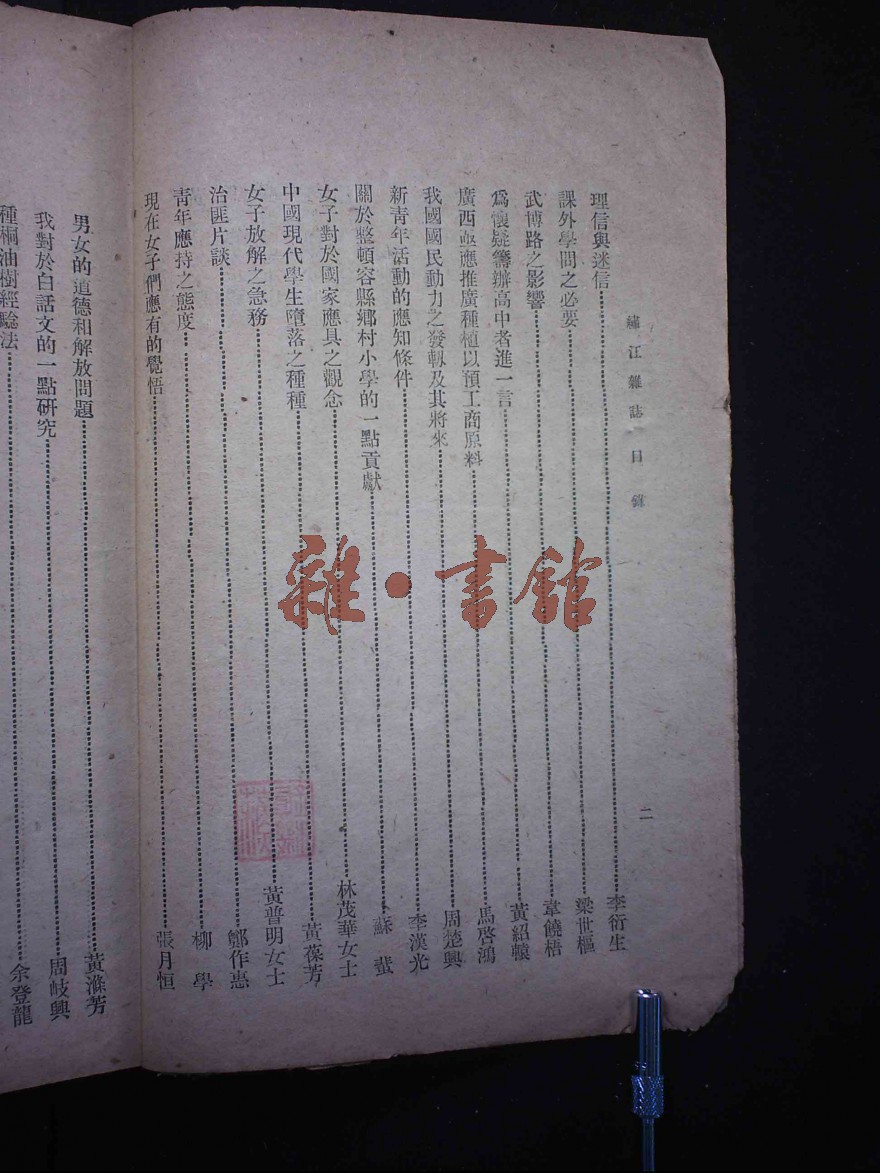 繡江雜誌 目錄 二
理信與迷信 李衍生
課外學問之必要 梁世樞
武博路之影響 韋饒梧
爲懷疑籌辦高中者進一言 黃紹轅
廣西亟應推廣種植以預工商原料 馬啓鴻
我國國民動力之發軔及其將來 周楚興
新青年活動的應知條件 李漢光
關於整頓容縣鄉村小學的一點貢獻 蘇蜚
女子對於國家應具之觀念 林茂華女士
中國現代學生墮落之種種 黃葆芳
女子放解之急務 黃普明女士
治匪片談 鄭作惠
青年應持之態度 柳學
現在女子們應有的覺悟 張月恒
男女的道德和解放問題 黃滌芳
我對於白話文的一點研究 周岐興
種桐油樹經驗法 余登龍
雜·書館